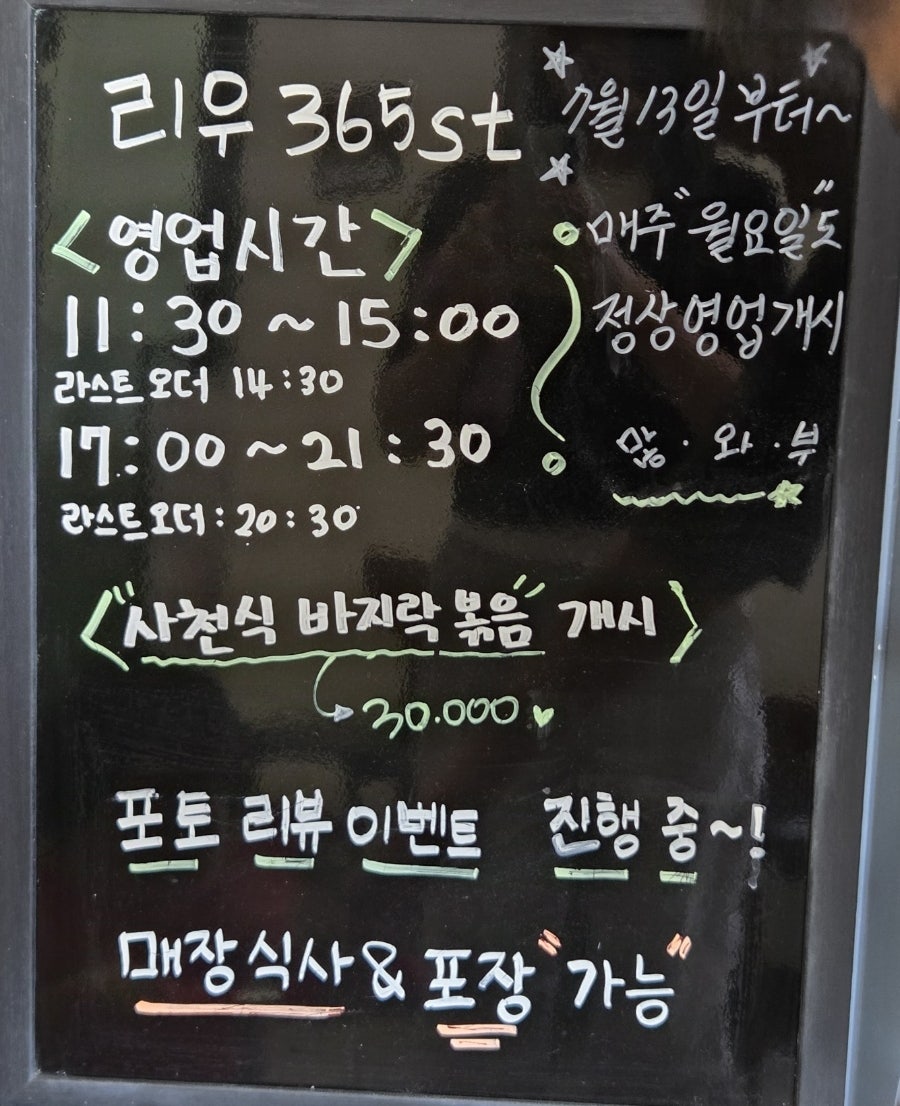 리우 365st
<영업시간>
11:30 ~ 15:00
라스트오더 14:30
17:00 ~ 21:30
라스트오더:20:30
7월 13일 부터~
매주 "월요일"도
정상영업개시
많·와·부
<"사천식 바지락 볶음" 개시>
30.000
포토 리뷰 이벤트 진행 중~!
매장식사 & 포장 "가능"